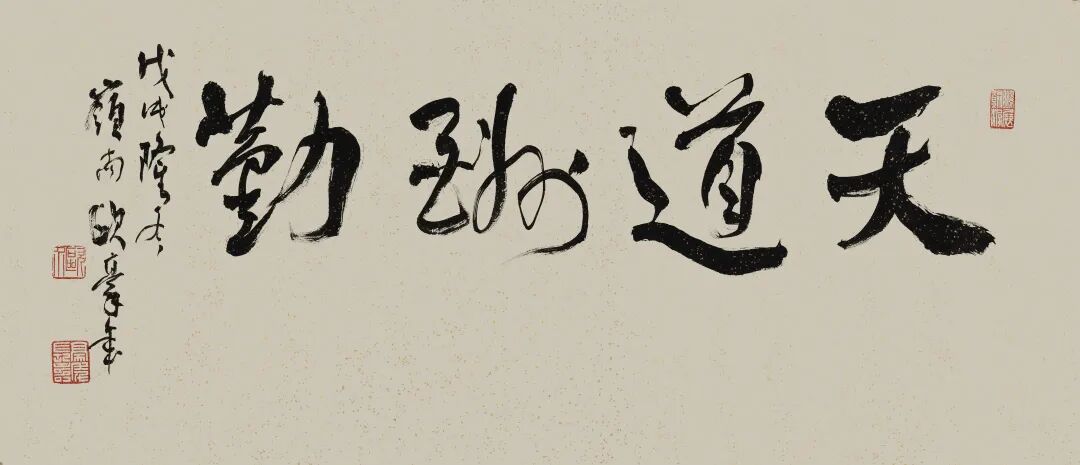 天道酬勤
戊戌隆冬
嶺南歐豪年